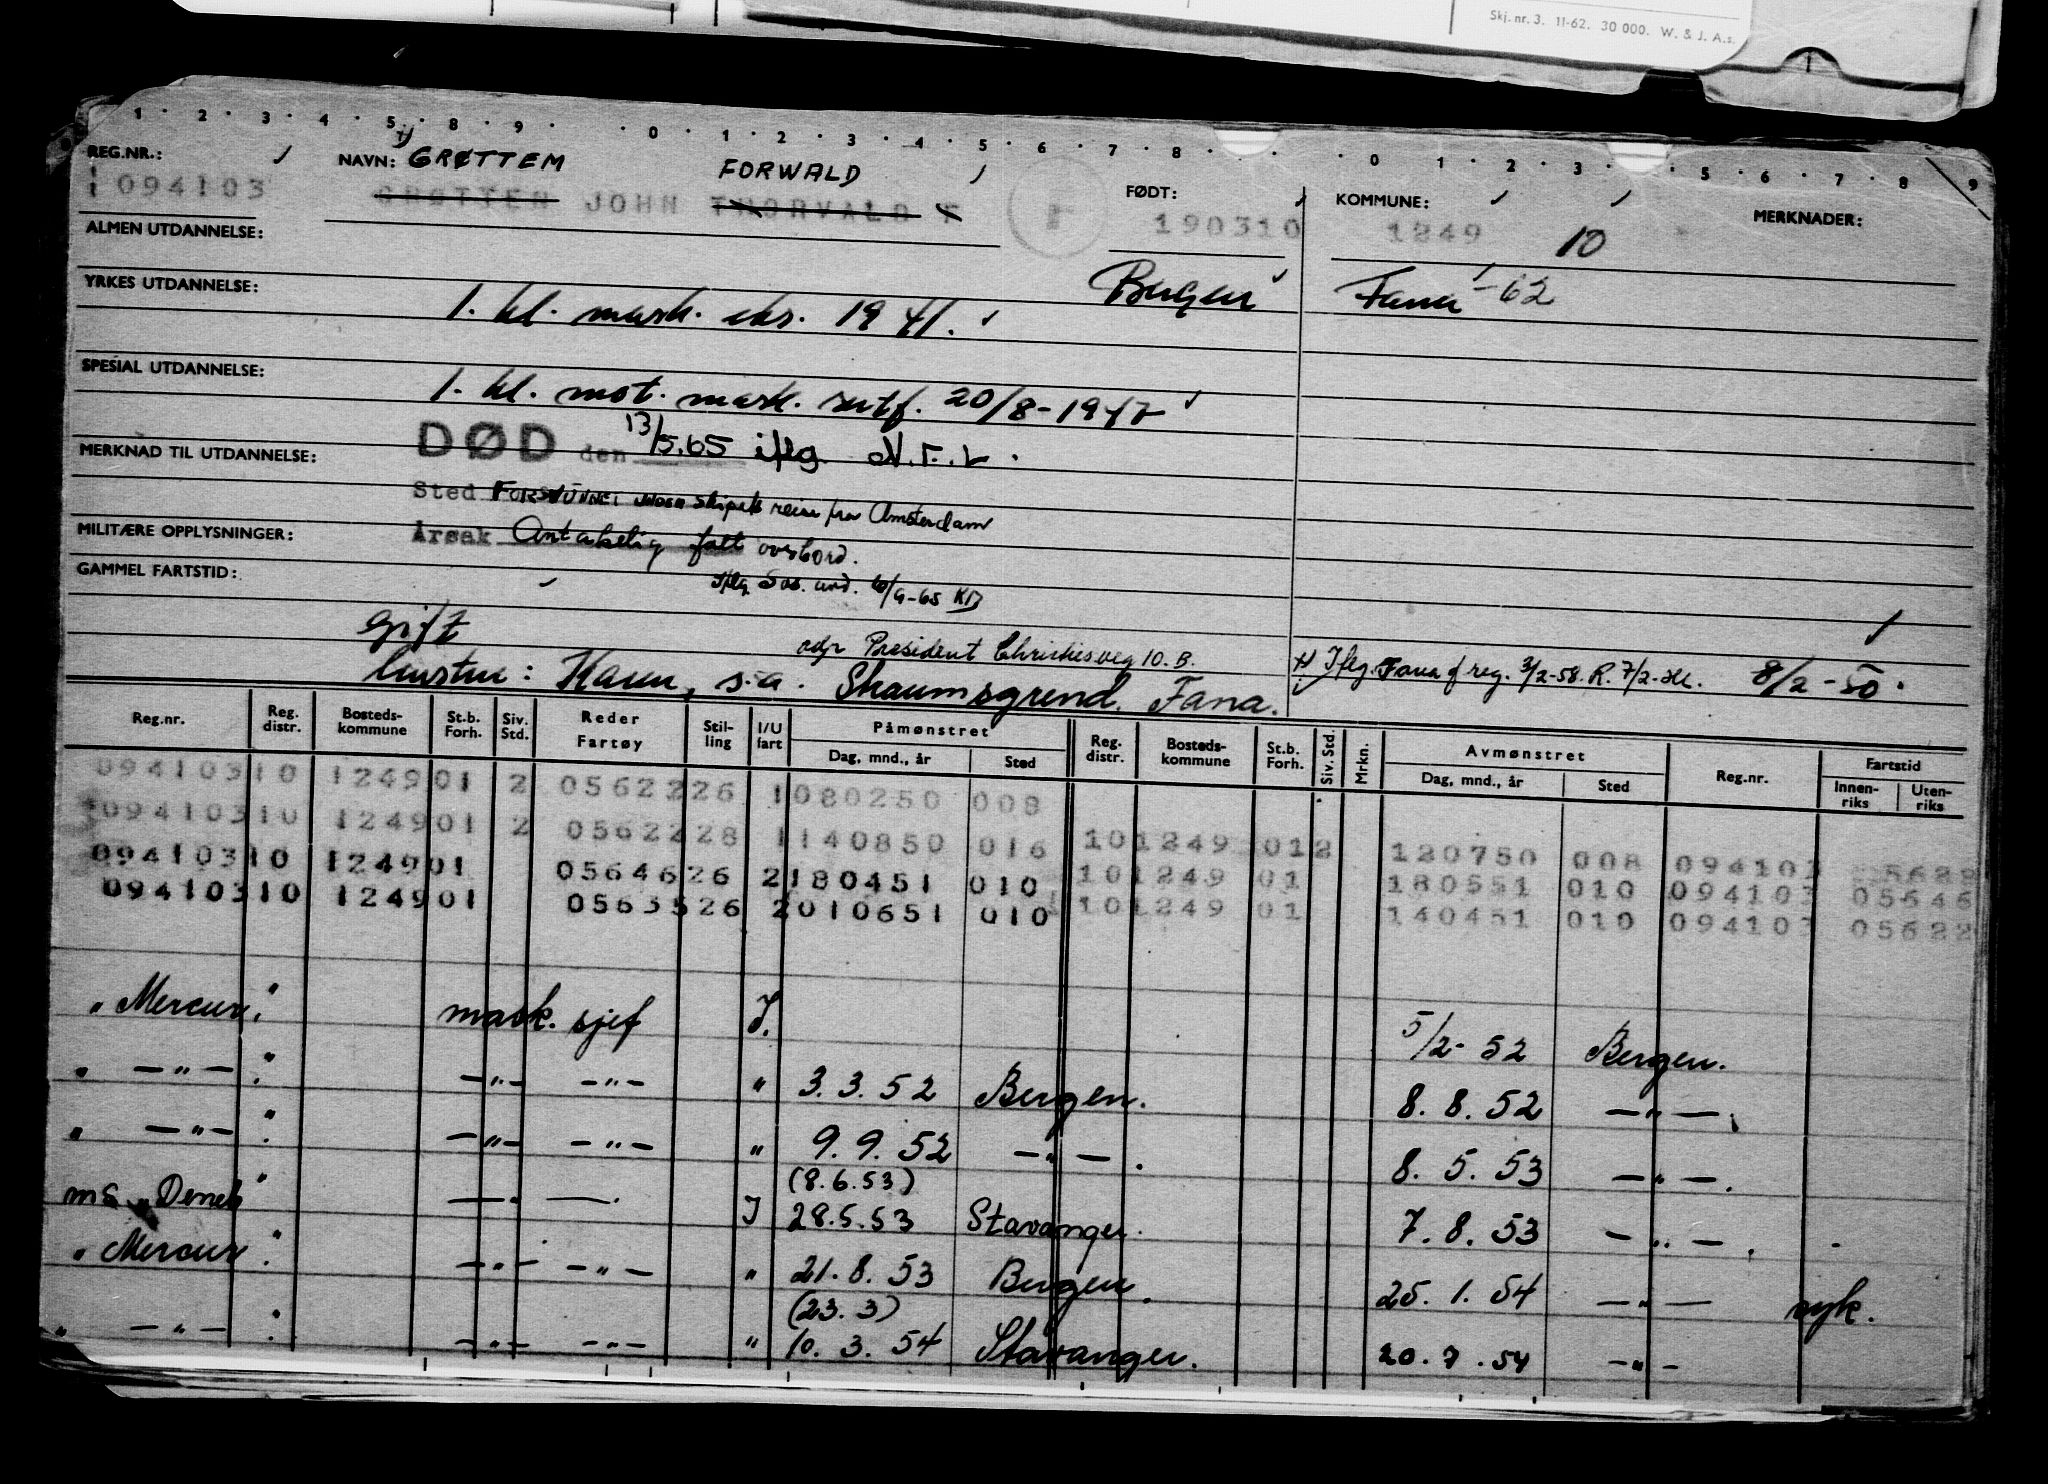 Skj. nr. 3. 11-62. 30 000. W. & J. A.s.
1 · 2 · 3 · 4 · 5 · 8 · 9 · · 0 · 1 · 2 · 3 · 4 · 5 · 6 · 7 · 8 · · · · 0 · 1 · 2 · 3 · · 5 · 6 · 7 · 8 · 9
REG.NR.: NAVN: GRØTTEM FORWALD FØDT: KOMMUNE: MERKNADER:
094103 GRØTTEN JOHN THORVALD F 190310 1249 10
ALMEN UTDANNELSE:
Bergen Fana -62
YRKES UTDANNELSE:
1. kl. mask. eks. 1941.
SPESIAL UTDANNELSE:
1. kl. mot. mask. sertf. 20/8-1947
DØD den 13/5.65 iflg.
MERKNAD TIL UTDANNELSE:
Sted FORSVUNNET under skipets reise fra Amsterdam
MILITÆRE OPPLYSNINGER:
Årsak Antakelig falt overbord.
GAMMEL FARTSTID: -
Iflg. 6/9-65
Gift
adr President Christiesveg 10. B.
hustru: Karen, s.a. Skaumsgrend. Fana.
Iflg. Fana f reg. 3/2-58. R. 7/2- 8/2-50.
Reg.nr. Reg. distr. Bosteds- kommune St.b. Forh. Siv. Std. Reder Fartøy Stil- ling I/U fart Påmønstret Reg. distr. Bosteds- kommune St.b. Forh. Siv. Std. Mrkn. Avmønstret Reg.nr. Fartstid
Dag, mnd., år Sted Dag, mnd., år Sted Innen- riks Uten- riks
09410310 124901 2 0562226 1080250 008
09410310 124901 2 0562228 1140850 016 101249 012 120750 008 094103
09410310 124901 0564626 2180451 010 101249 01 180551 010 094103 05646
09410310 124901 0563526 2010651 010 101249 01 140451 010 094103 05622
„ Mercur." mask. sjef I. 5/2- 52 Bergen.
„ — „ — " -„- -„- „ 3. 3. 52 Bergen. 8. 8. 52 — „ —.
„ — „ — " -„- -„- „ 9. 9. 52 — „ —. 8. 5. 53 — „ —.
(8.6.53)
ms „ Deneb" — „ — I 28.5.53 Stavanger. 7. 8. 53 — „ —.
„ Mercur." -„- -„- „ 21. 8. 53 Bergen. 25. 1. 54 — „ — syk.
(23. 3)
„ — „ — " -„- -„- „ 10. 3. 54 Stavanger. 20. 7. 54 -„-